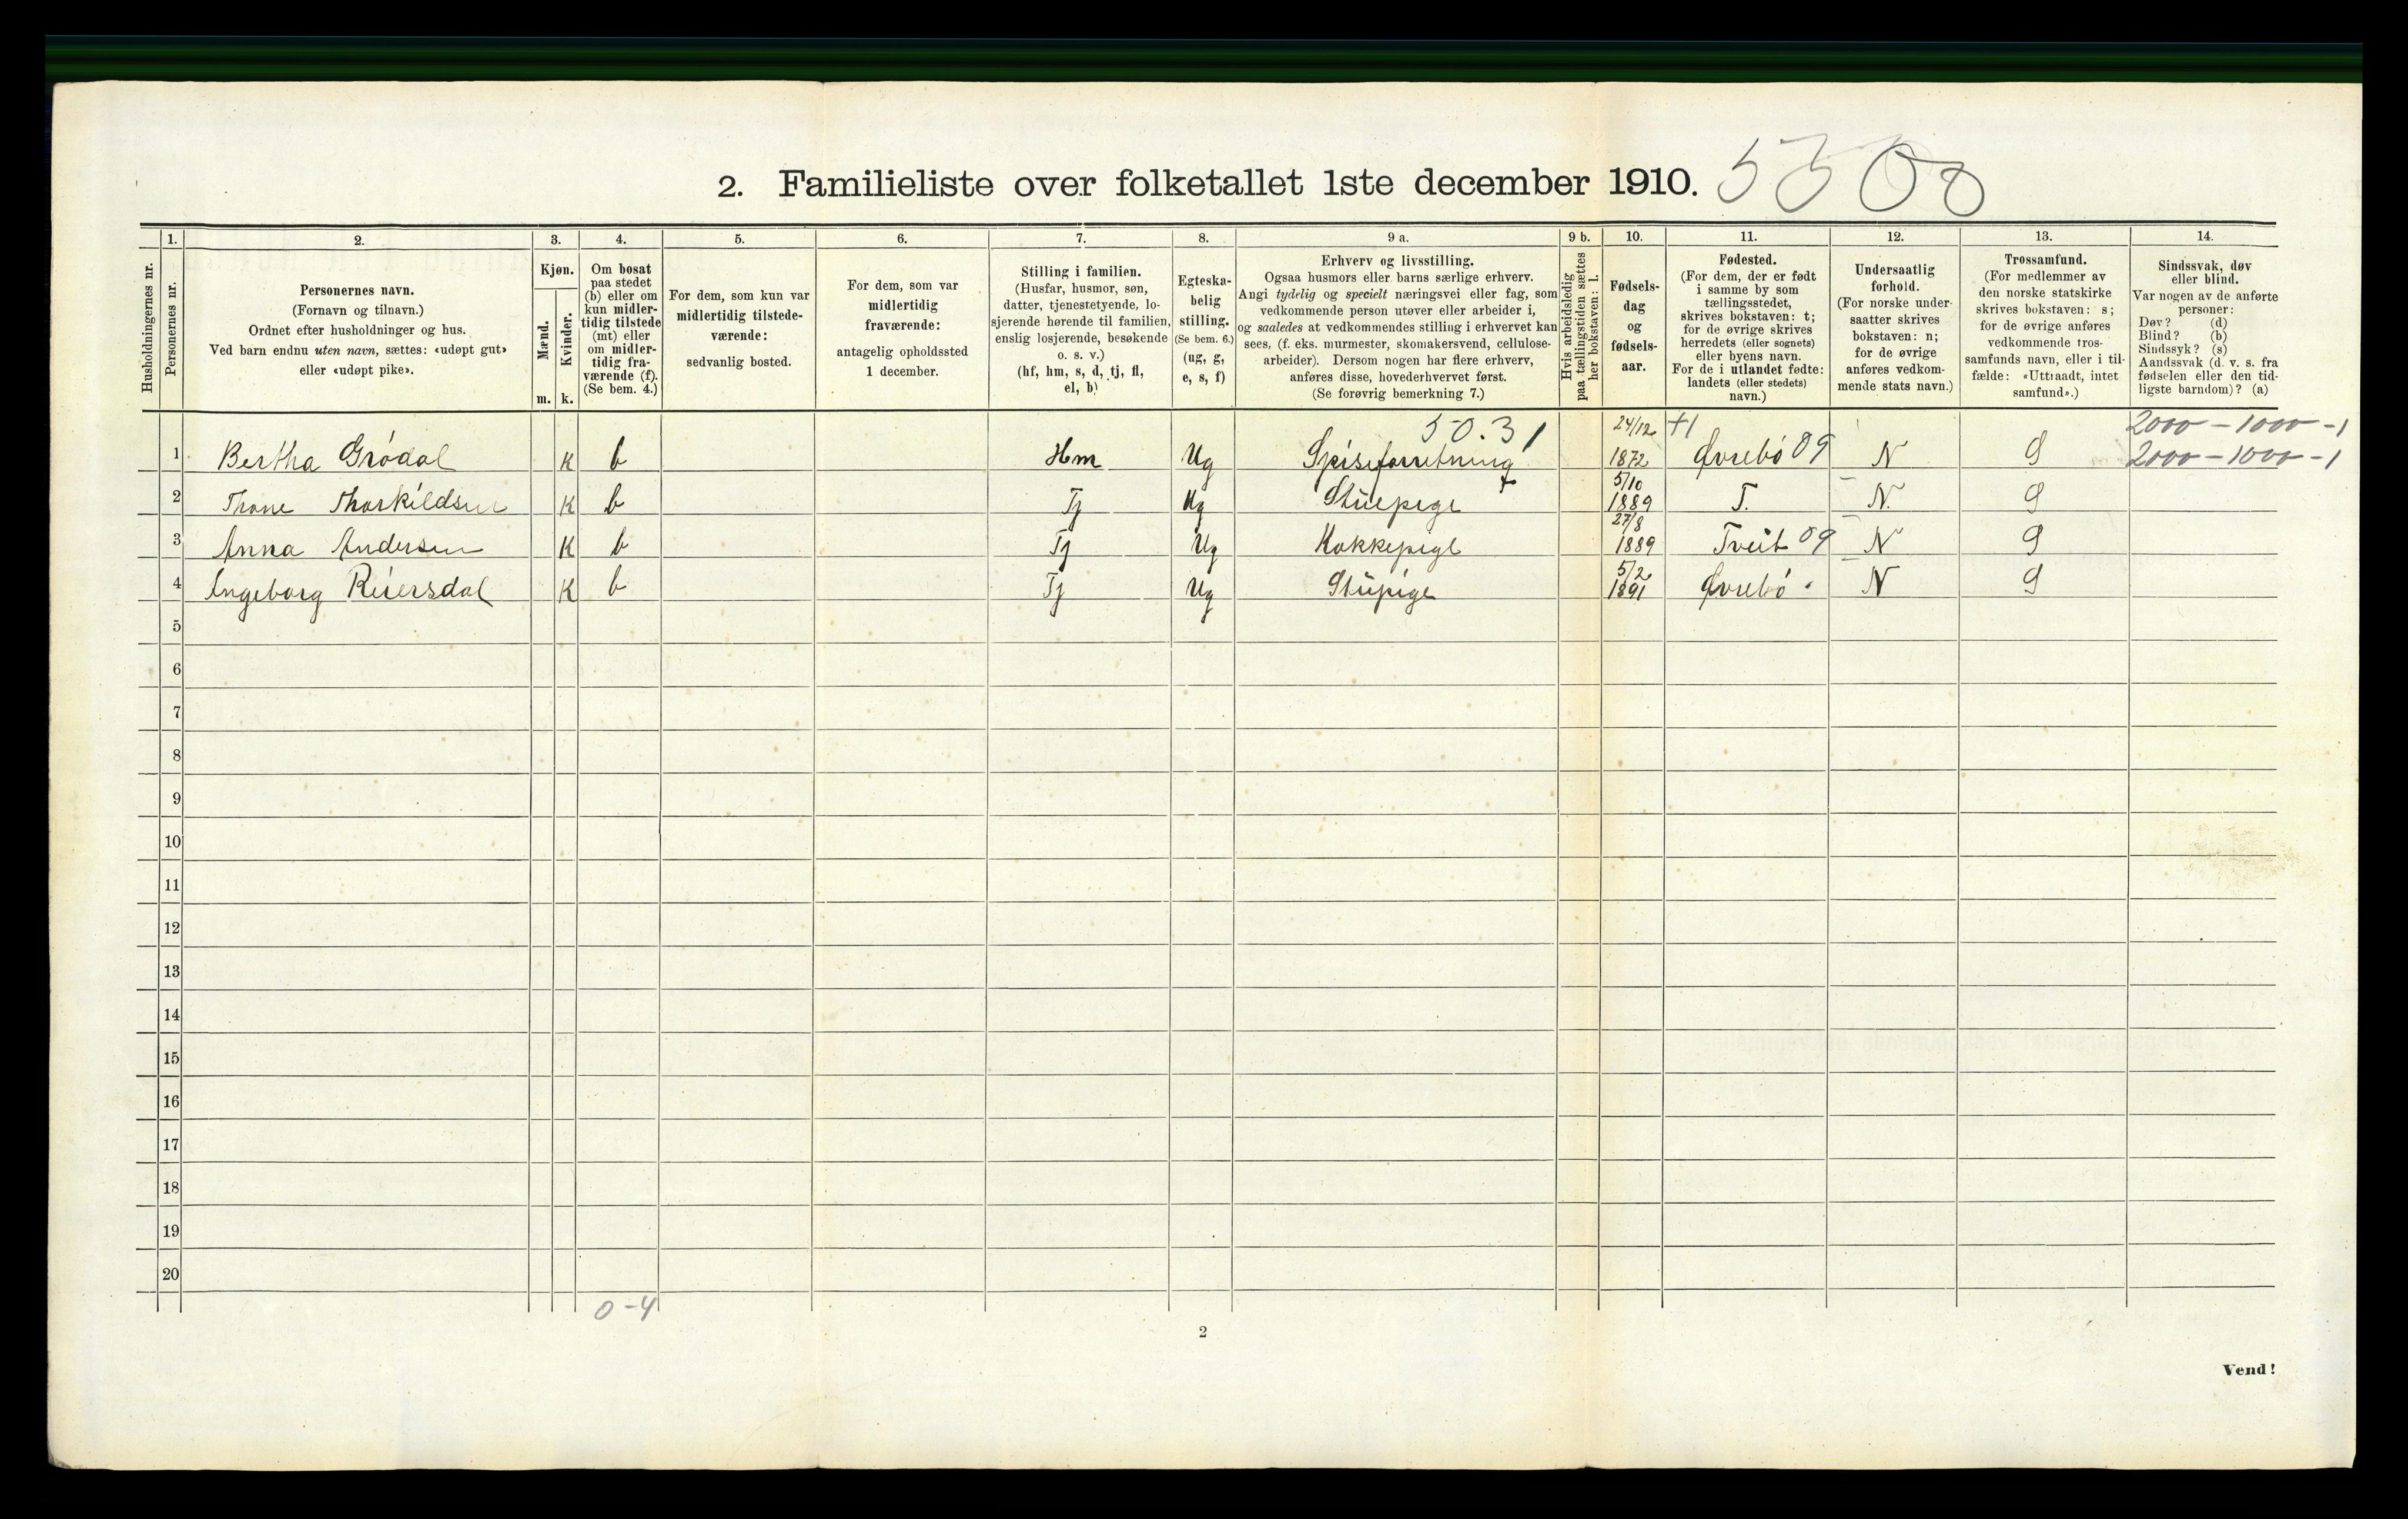 2. Familieliste over folketallet 1ste december 1910. 5308
Husholdningernes nr.
1.
Personernes nr.
2.
Personernes navn.
(Fornavn og tilnavn.)
Ordnet efter husholdninger og hus.
Ved barn endnu uten navn, sættes: «udøpt gut»
eller «udøpt pike».
3.
Kjøn.
Mænd.
Kvinder.
m. k.
4.
Om bosat
paa stedet
(b) eller om
kun midler-
tidig tilstede
(mt) eller
om midler-
tidig fra-
værende (f).
(Se bem. 4.)
5.
For dem, som kun var
midlertidig tilstede-
værende:
sedvanlig bosted.
6.
For dem, som var
midlertidig
fraværende:
antagelig opholdssted
1 december.
7.
Stilling i familien.
(Husfar, husmor, søn,
datter, tjenestetyende, lo-
sjerende hørende til familien,
enslig losjerende, besøkende
o. s. v.)
(hf, hm, s, d, tj, fl,
el, b)
8.
Egteska-
belig
stilling.
(Se bem. 6.)
(ug, g,
e, s, f)
9 a.
Erhverv og livsstilling.
Ogsaa husmors eller barns særlige erhverv.
Angi tydelig og specielt næringsvei eller fag, som
vedkommende person utøver eller arbeider i,
og saaledes at vedkommendes stilling i erhvervet kan
sees, (f. eks. murmester, skomakersvend, cellulose-
arbeider). Dersom nogen har flere erhverv,
anføres disse, hovederhvervet først.
(Se forøvrig bemerkning 7.)
9 b.
Hvis arbeidsledig
paa tællingstiden sættes
her bokstaven: l.
10.
Fødsels-
dag
og
fødsels-
aar.
11.
Fødested.
(For dem, der er født
i samme by som
tællingsstedet,
skrives bokstaven: t;
for de øvrige skrives
herredets (eller sognets)
eller byens navn.
For de i utlandet fødte:
landets (eller stedets)
navn.)
12.
Undersaatlig
forhold.
(For norske under-
saatter skrives
bokstaven: n;
for de øvrige
anføres vedkom-
mende stats navn.)
13.
Trossamfund.
(For medlemmer av
den norske statskirke
skrives bokstaven: s;
for de øvrige anføres
vedkommende tros-
samfunds navn, eller i til-
fælde: «Uttraadt, intet
samfund».)
14.
Sindssvak, døv
eller blind.
Var nogen av de anførte
personer:
Døv? (d)
Blind? (b)
Sindssyk? (s)
Aandssvak (d. v. s. fra
fødselen eller den tid-
ligste barndom)? (a)
50.31 24/12 +1 2000 - 1000 - 1
1 Bertha Grødal K b Hm Ug Spiseforretning 1872 Øvrebö 09 N S 2000 - 1000 - 1
5/10
2 Thone Thorkildsen K b Tj Ug Stuepige 1889 T. N. S
27/8
3 Anna Andersen K b Tj Ug Kokkepige 1889 Tveit 09 N S
5/2
4 Ingeborg Reiersdal K b Tj Ug Stupige 1891 Øvrebö N S
5
6
7
8
9
10
11
12
13
14
15
16
17
18
19
20
0-4
2
Vend!